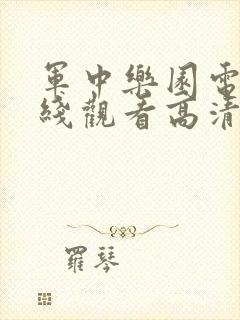 軍中樂園電
綫觀看高清
羅琴